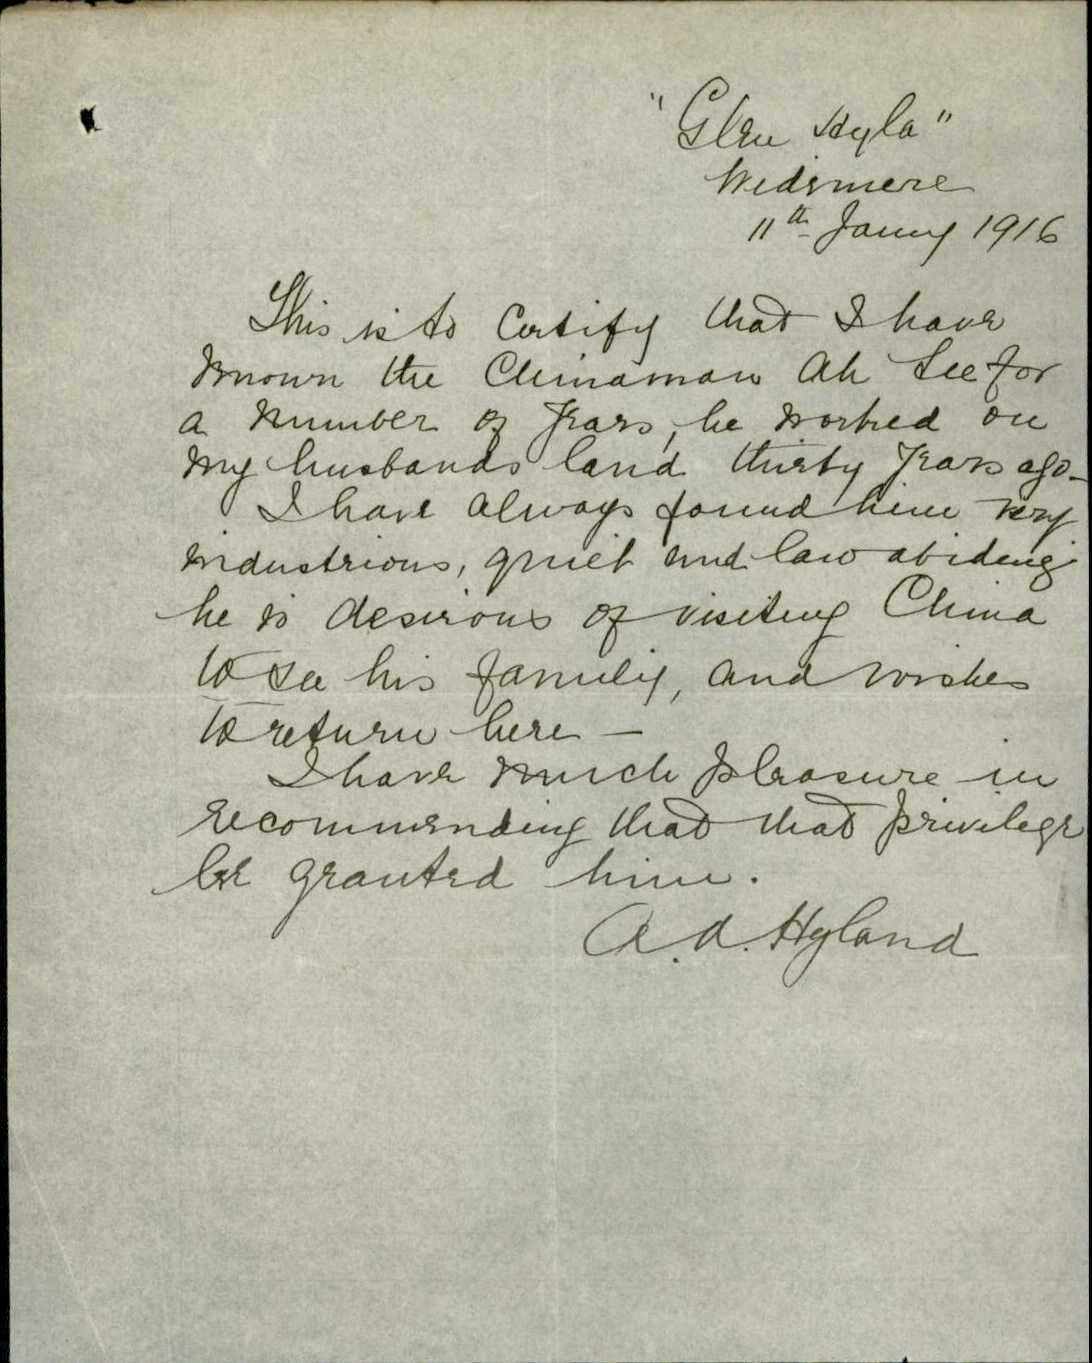 "Glen Hyla"
Widemere
11th Januy 1916
This is to Certify that I have
known the Chinaman Ah See for
a number of years, he worked on
my husbands land thirty years ago_
I have always found him very
industrious, quiet and law abiding
he is desirous of visiting China
to see his family, and wishes
to return here _
I have much pleasure in
recommending that that privilege
be granted him.
A. A. Hyland